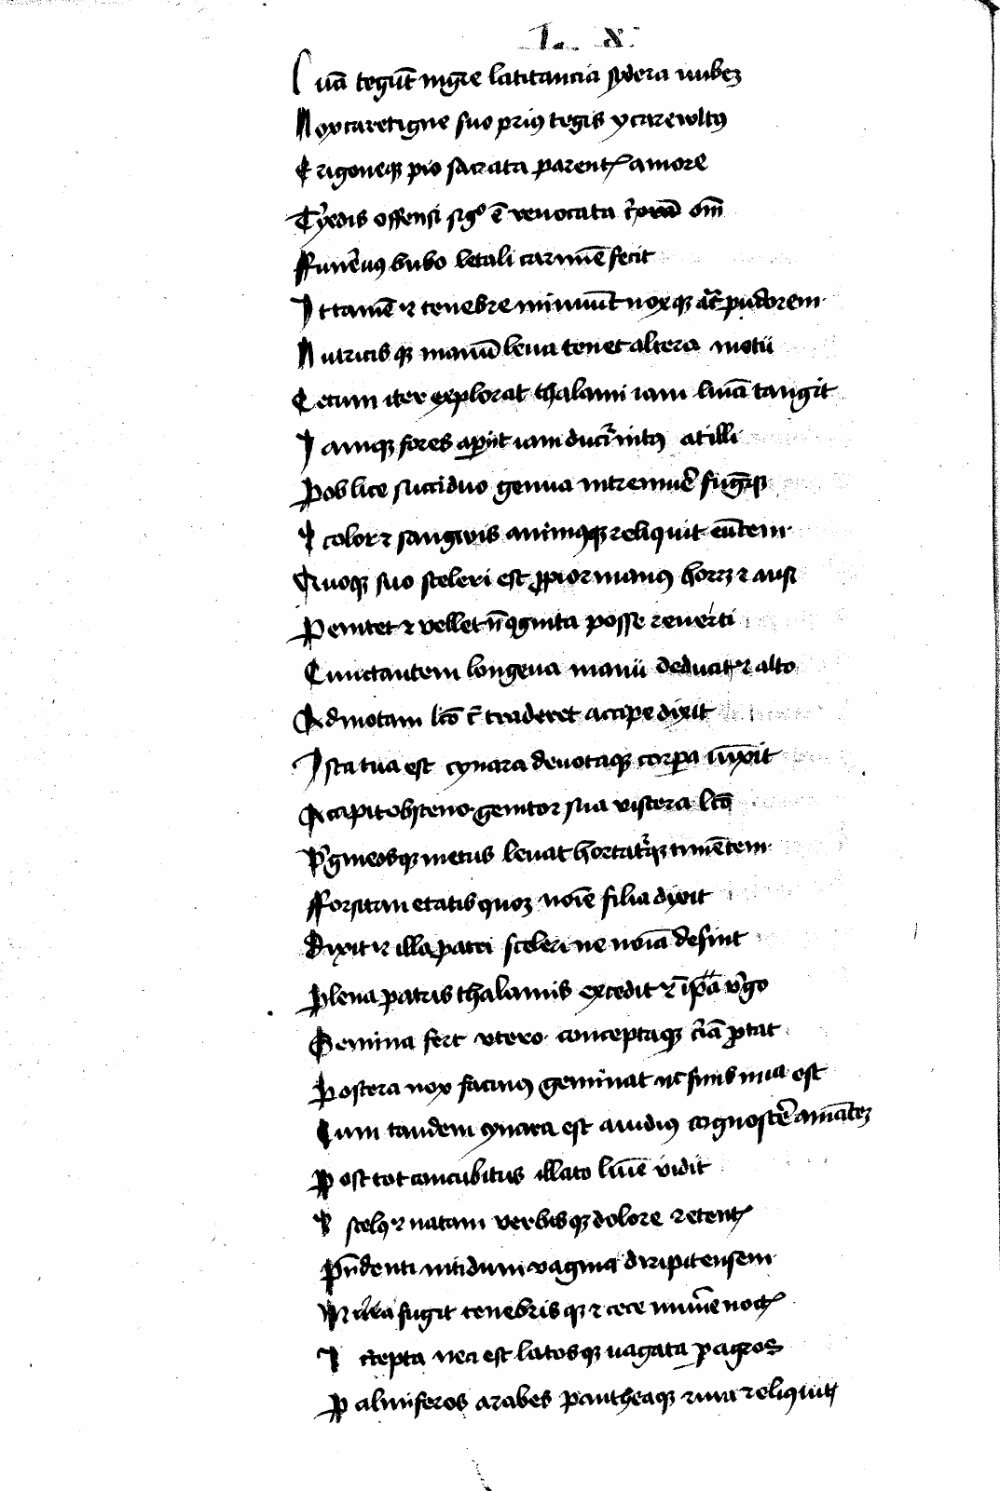 L. X
Luā tegūt nigre latitancia sydera nubeȝ
Nox caret igne suo priꝰ tegis ycare vvltꝰ
Erigoneqꝫ pio sacrata parentꝭ amore
Tꝰ pedis offensi sigº ē reuocata
Funēꝰ bubo letali carmīe fecit
It tamē ⁊ tenebre minuūt noxqꝫ at̄ pudorem
Nutricisqꝫ manū leua tenet altera motū
Cecum iter explorat thalami iam limīa tangit
Iamqꝫ fores apiit iam ducit̄ intꝰ at illi
Poblice succiduo genua intremuēr fugitqꝫ
Et color ⁊ sangwis animꝰqꝫ reliquit eūtem
Quoqꝫ suo sceleri est ꝓpior magis horꝫ ⁊ ausi
Penitet ⁊ vellet nō ꝯgnita posse reuerti
Cunctantem longeua manū deducit ⁊ alto
Admotam lc̄o cū traderet accipe dixit
Ista tua est cynara deuotaqꝫ corpa iūxit
Accipit obsceno genitor sua viscera lc̄o
Virgineosqꝫ metus leuat hortat̄qꝫ timētem
Forsitan etatis quoqꝫ noīe filia dixit
Dixit ⁊ illa pater sceleri ne noīa desint
Plena patris thalamis excedit ⁊ īpīa v̄go
Semina fert vtero conceptaqꝫ crīa portat
Postera nox facinꝰ geminat nc̄ finis in ea est
Cum tandem cynara est auidiꝰ cognoscēr amātē
Post tot concubitus illato lumīe vidit
Et scelꝰ ⁊ natam verbisqꝫ dolore retentꝭ
Pendenti nitidum vagina diripit ensem
Mirra fugit tenebrisqꝫ ⁊ cece munīe noctꝭ
Intercepta neci est latosqꝫ uagata per agros
Palmiferos arabes pantheaqꝫ rura reliquit